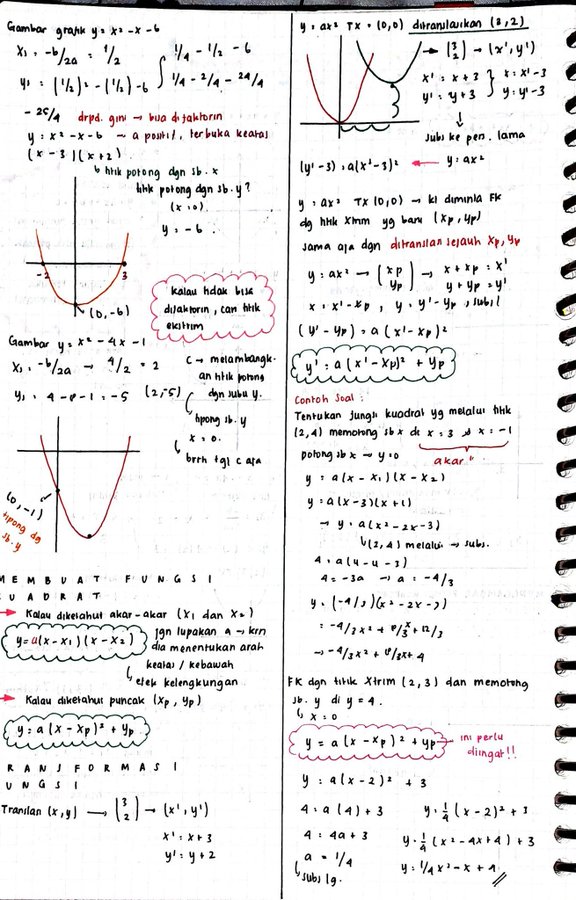 Gambar grafik y = x² - x - 6
xs = -b/2a = 1/2
ys = (1/2)² - (1/2) - 6
1/4 - 1/2 - 6
1/4 - 2/4 - 24/4
- 25/4 drpd. gini → bisa difaktorin
y = x² - x - 6 → a positif, terbuka keatas
(x - 3)(x + 2)
↳ titik potong dgn sb. x
titik potong dgn sb. y?
(x = 0)
y = -6
-2
3
(0, -6)
kalau tidak bisa
difaktorin, cari titik
ekstrim
Gambar y = x² - 4x - 1
xs = -b/2a → 4/2 = 2
ys = 4 - 8 - 1 = -5 (2, -5)
C → melambangk-
an titik potong
dgn subu y.
tipong sb. y
x = 0.
brrti tgl c aja
(0, -1)
tipong dg
sb. y
MEMBUAT FUNGSI
KUADRAT
→ Kalau diketahui akar-akar (x1 dan x2)
y = a(x - x1)(x - x2)
jgn lupakan a → krn
dia menentukan arah
keatas / kebawah
efek kelengkungan
→ Kalau diketahui puncak (xp, yp)
y = a(x - xp)² + yp
RANSFORMASI
UNGSI
Translasi (x, y) → (3 2) → (x', y')
x' = x + 3
y' = y + 2
y = ax² TX = (0,0) ditranslasikan (3, 2)
→ (3 2) → (x', y')
x' = x + 3 } x = x' - 3
y' = y + 3 } y = y' - 3
↓
subs ke pers. lama
(y' - 3) = a(x' - 3)² ← y = ax²
y = ax² TX (0,0) → kl diminta FK
dg titik Xtrim yg baru (xp, yp)
sama aja dgn ditranslasi sejauh xp, yp
y = ax² → (xp yp) → x + xp = x'
y + yp = y'
x = x' - xp, y = y' - yp, subs!
(y' - yp) = a(x' - xp)²
y' = a(x' - xp)² + yp
Contoh Soal :
Tentukan fungsi kuadrat yg melalui titik
(2, 4) memotong sb x di x = 3 & x = -1
akar"
potong sb x → y = 0
y = a(x - x1)(x - x2)
y = a(x - 3)(x + 1)
→ y = a(x² - 2x - 3)
↳ (2, 4) melalui → subs.
4 = a(4 - 4 - 3)
4 = -3a → a = -4/3
y = (-4/3)(x² - 2x - 3)
= -4/3x² + 8/3x + 12/3
→ -4/3x² + 8/3x + 4
FK dgn titik Xtrim (2, 3) dan memotong
sb. y di y = 4.
↳ x = 0
y = a(x - xp)² + yp
ini perlu
diingat!!
y = a(x - 2)² + 3
4 = a(4) + 3
4 = 4a + 3
a = 1/4
↳ subs lg.
y = 1/4 (x - 2)² + 3
y = 1/4 (x² - 4x + 4) + 3
y = 1/4x² - x + 4